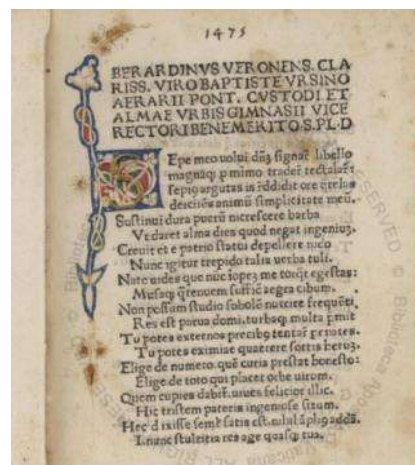 1475
BERARDINVS VERONENS. CLA
RISS. VIRO BAPTISTE VRSINO
AERARII PONT. CVSTODI ET
ALMAE VRBIS GIMNASII VICE
RECTORI BENEMERITO S. PL. D
SEpe meo uolui dñe signare libello
magnaq; primo
sepiꝰ argutas is reddidit ore q̃relas
deiciẽs animũ simplicitate meũ.
Sustinui dura puerũ nicrescere barba
Vt daret alma dies quod negat ingeniuȝ.
Creuit et e patrio statui depellere nido
Nunc igitur trepido talia uerba tuli.
Nate uides que nũc ſopeȝ me torq̃t egestas:
Musaq; q̃ tenuem suffic̃ aegra cibum.
Non possum studio sobolẽ nutrire frequẽti.
Res est parua domi, turbaq; multa p̃mit
Tu potes externos precibꝰ tentare penates.
Tu potes eximiae quaerere sortis heruȝ.
Elige de numero, quẽ curia prestat honesto:
Elige de toto qui placet orbe uirum.
Quem cupies dabit᷑. uiues felicior illic.
Hic tristem pateris ingeniose situm.
Hec dixisse semel satis est. nihil ãpliꝰ addã.
I. nunc stultitia res age quasq; tua.